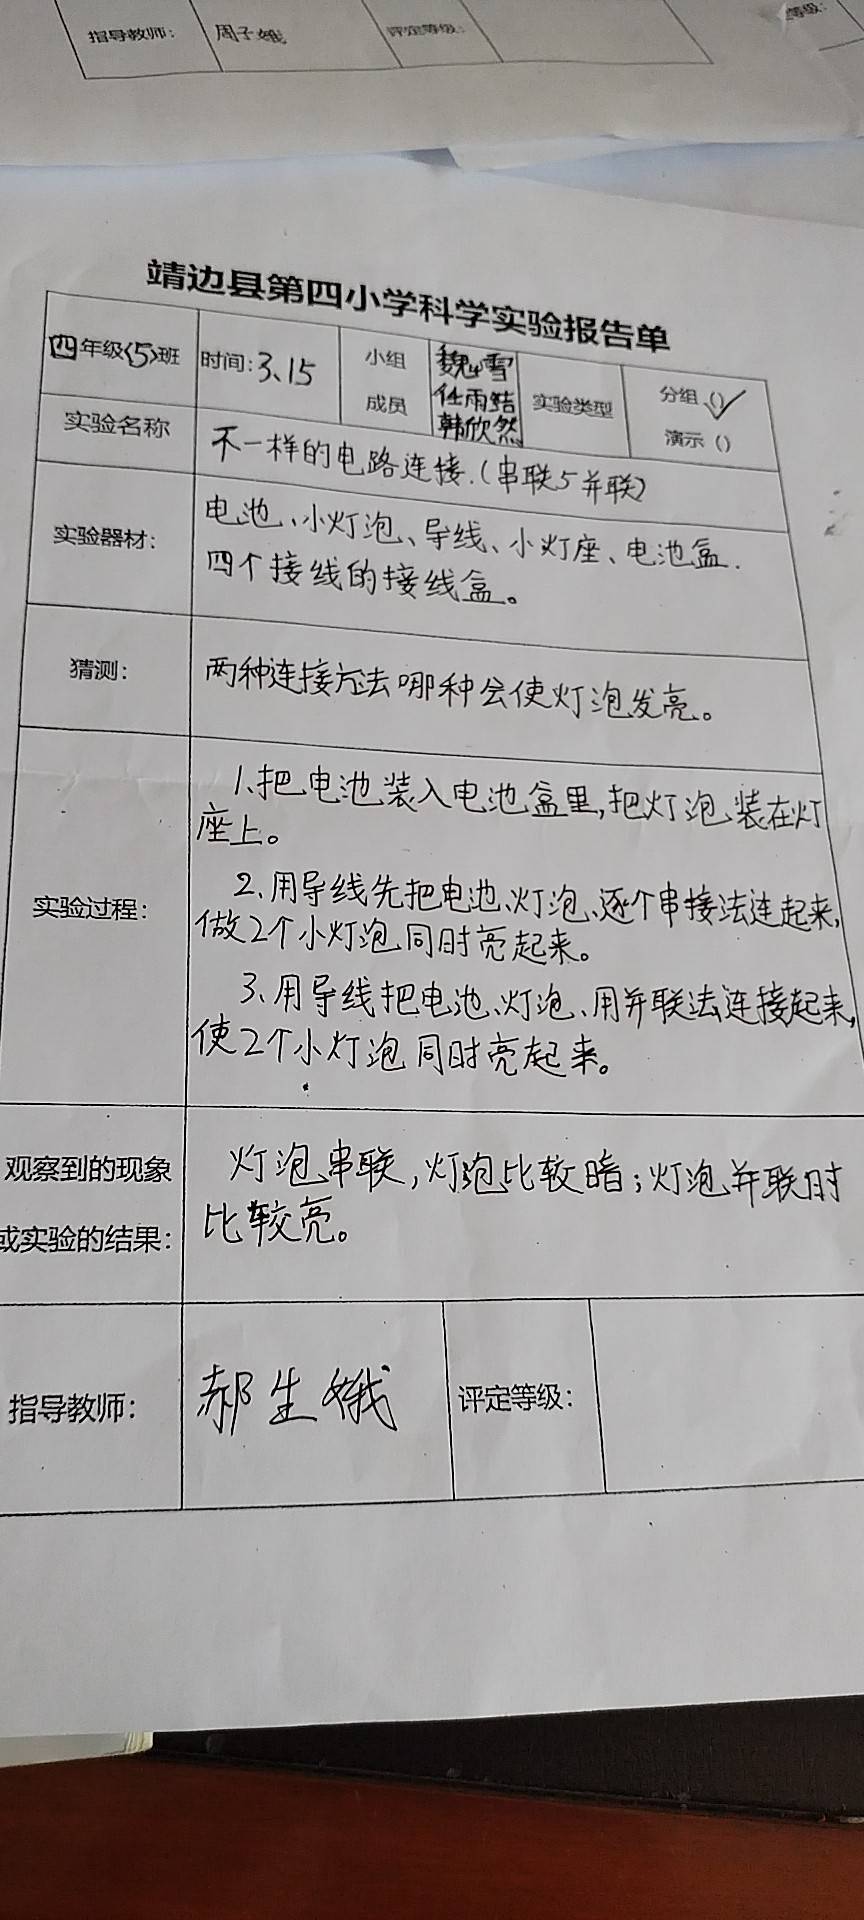 指导教师:
周子娥
评定等级:
等级:
靖边县第四小学科学实验报告单
四年级(5)班
时间:3、15
小组
成员
任雨洁
韩欣然
实验类型
分组 (✓)
演示 ()
实验名称
不一样的电路连接.(串联与并联)
实验器材:
电池、小灯泡、导线、小灯座、电池盒.
四个接线的接线盒。
猜测:
两种连接方法哪种会使灯泡发亮。
实验过程:
1、把电池装入电池盒里,把灯泡装在灯
座上。
2、用导线先把电池、灯泡、逐个串接法连起来,
做2个小灯泡同时亮起来。
3、用导线把电池、灯泡、用并联法连接起来,
使2个小灯泡同时亮起来。
观察到的现象
或实验的结果:
灯泡串联,灯泡比较暗;灯泡并联时
比较亮。
指导教师:
郝生娥
评定等级: